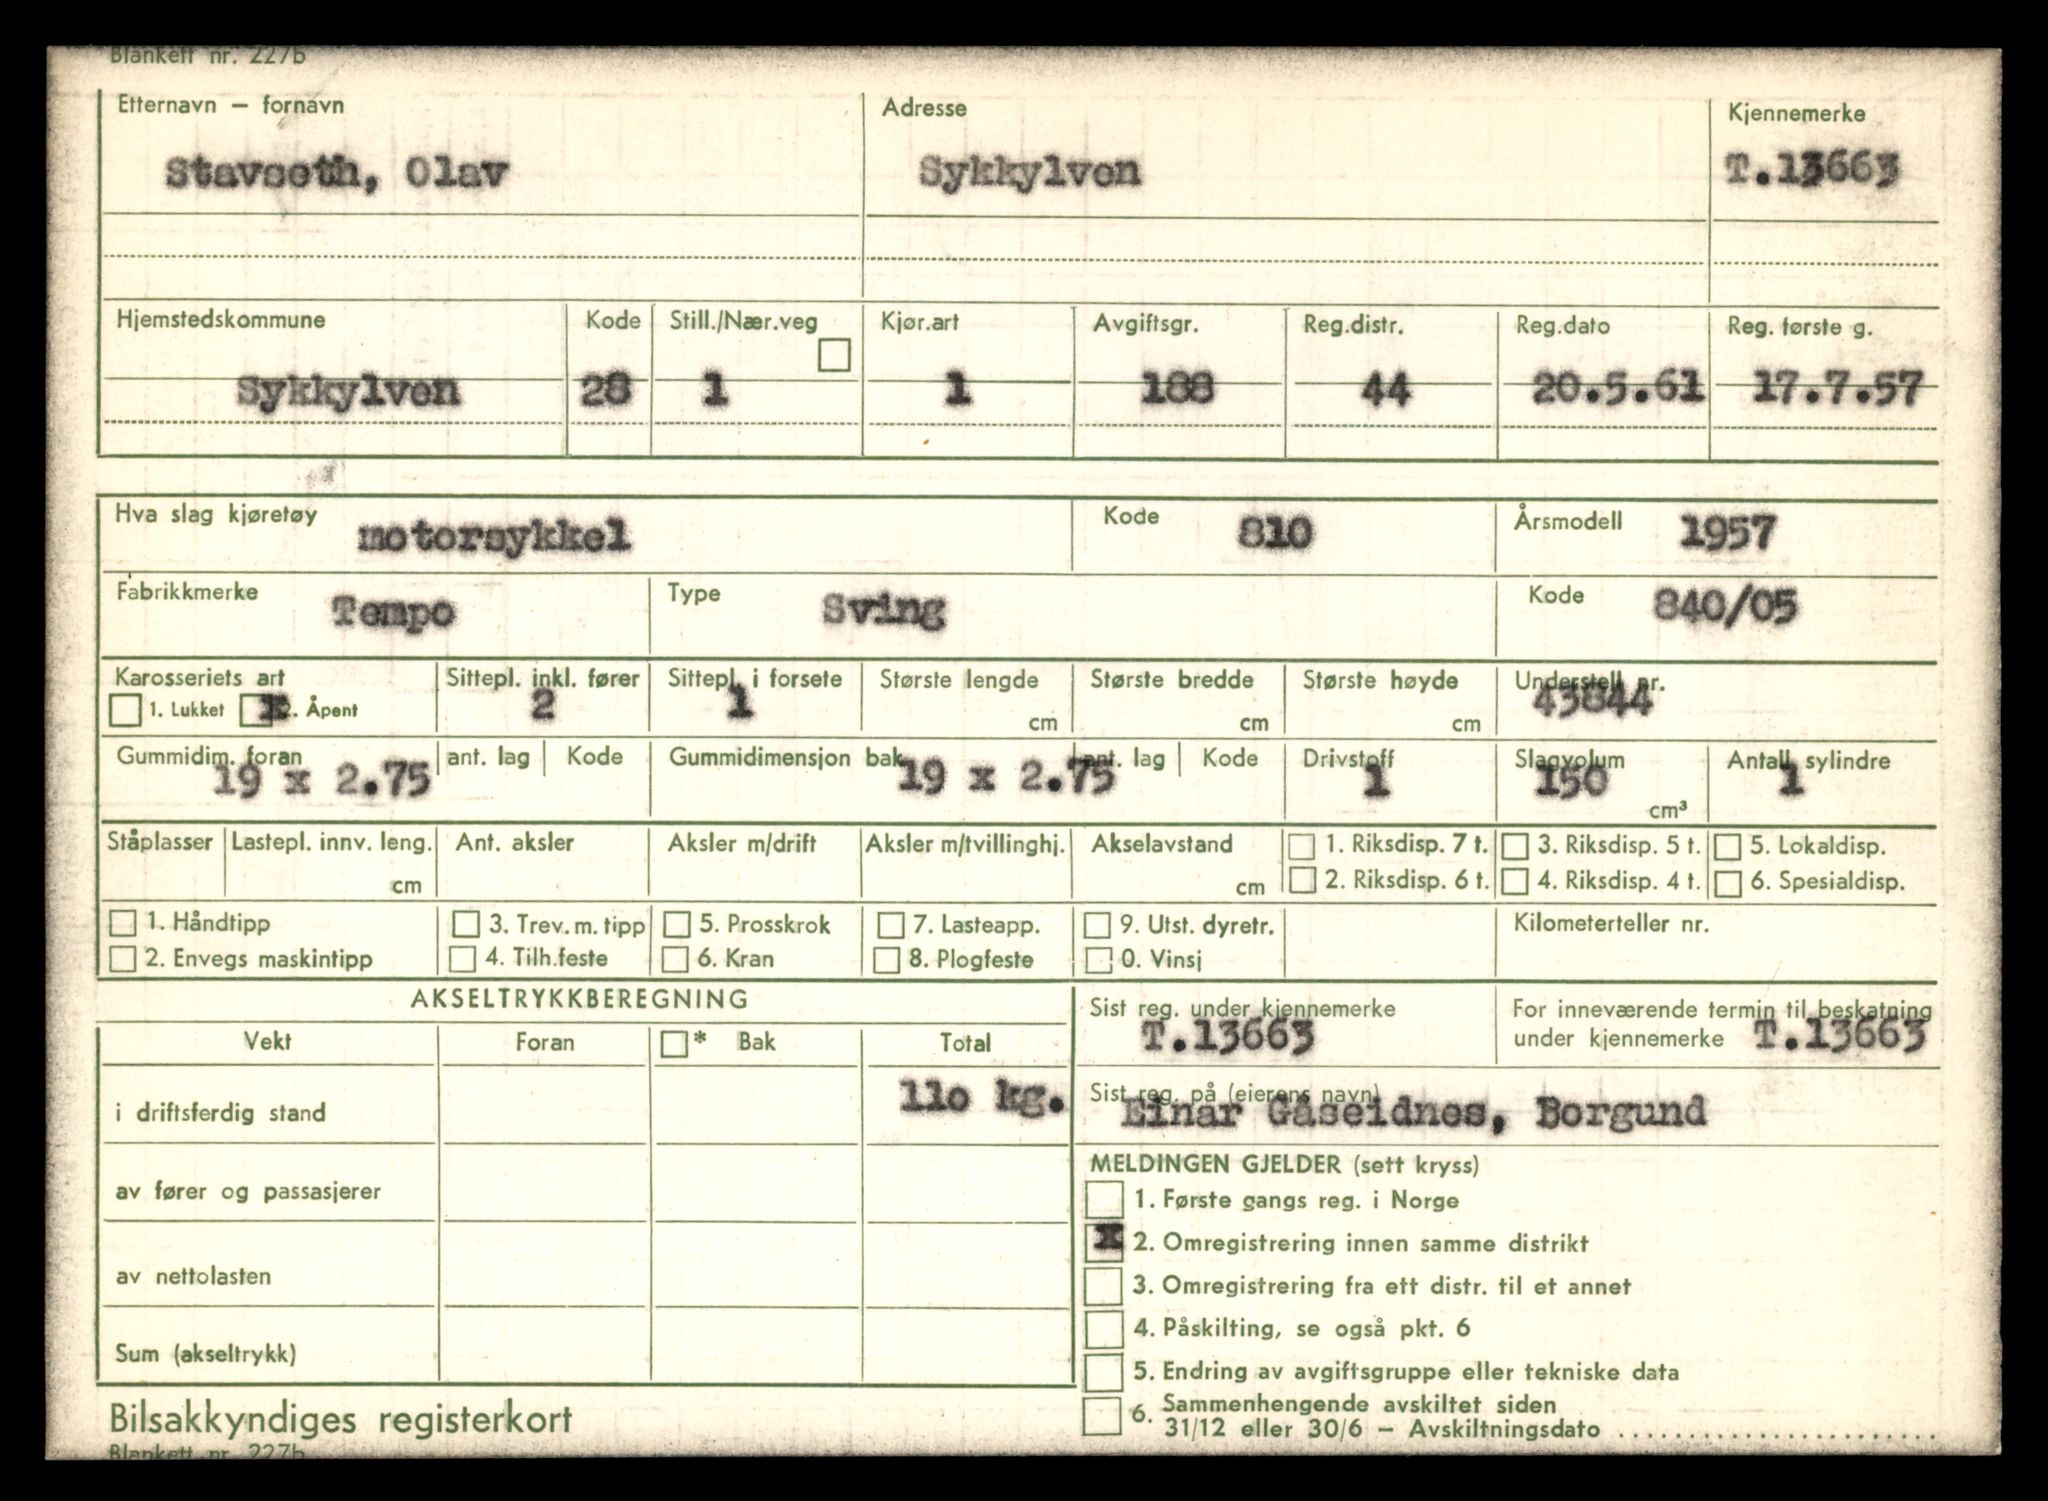 Blankett nr. 227b
Etternavn – fornavn Adresse Kjennemerke
Stavseth, Olav Sykkylven T.13663
Hjemstedskommune Kode Still./Nær.veg Kjør.art Avgiftsgr. Reg.distr. Reg.dato Reg. første g.
Sykkylven 28 1 1 188 44 20.5.61 17.7.57
Hva slag kjøretøy motorsykkel Kode 810 Årsmodell 1957
Fabrikkmerke Tempo Type Sving Kode 840/05
Karosseriets art Sittepl. inkl. fører Sittepl. i forsete Største lengde Største bredde Største høyde Understell nr.
1. Lukket x 2. Åpent 2 1 cm cm cm 43844
Gummidim. foran ant. lag Kode Gummidimensjon bak ant. lag Kode Drivstoff Slagvolum Antall sylindre
19 x 2.75 19 x 2.75 1 150 cm³ 1
Ståplasser Lastepl. innv. leng. Ant. aksler Aksler m/drift Aksler m/tvillinghj. Akselavstand 1. Riksdisp. 7 t. 3. Riksdisp. 5 t. 5. Lokaldisp.
cm cm 2. Riksdisp. 6 t. 4. Riksdisp. 4 t. 6. Spesialdisp.
1. Håndtipp 3. Trev. m. tipp 5. Prosskrok 7. Lasteapp. 9. Utst. dyretr. Kilometerteller nr.
2. Envegs maskintipp 4. Tilh.feste 6. Kran 8. Plogfeste 0. Vinsj
AKSELTRYKKBEREGNING
Vekt Foran * Bak Total
i driftsferdig stand 110 kg.
av fører og passasjerer
av nettolasten
Sum (akseltrykk)
Sist reg. under kjennemerke For inneværende termin til beskatning
T.13663 under kjennemerke T.13663
Sist reg. på (eierens navn)
Einar Gåseidnes, Borgund
MELDINGEN GJELDER (sett kryss)
1. Første gangs reg. i Norge
x 2. Omregistrering innen samme distrikt
3. Omregistrering fra ett distr. til et annet
4. Påskilting, se også pkt. 6
5. Endring av avgiftsgruppe eller tekniske data
6. Sammenhengende avskiltet siden
31/12 eller 30/6 – Avskiltningsdato ......................
Bilsakkyndiges registerkort
Blankett nr. 227b